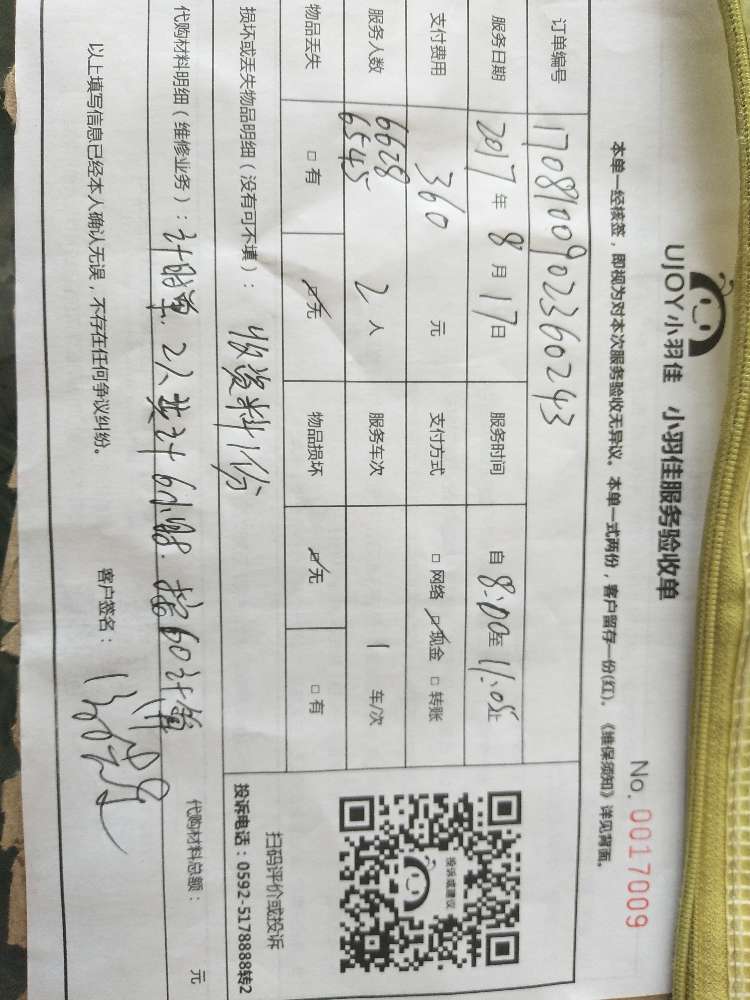 UJOY小羽佳 小羽佳服务验收单
No. 0017009
本单一经核签，即视为对本次服务验收无异议。本单一式两份，客户留存一份(红)。《维保须知》详见背面。
订单编号 1708100902360243
服务日期 2017年 8月17日 服务时间 自8:00至11:05止
支付费用 360 元 支付方式 □网络 ☑现金 □转账
服务人数 6628 6545 2人 服务车次 1 车/次
物品丢失 □有 ☑无 物品损坏 ☑无 □有
损坏或丢失物品明细（没有可不填）： 收资料1份
代购材料明细（维修业务）：计时单. 2人共计6小时. 按60计算 代购材料总额： 元
以上填写信息已经本人确认无误，不存在任何争议纠纷。 客户签名：
投诉或建议
扫码评价或投诉
投诉电话：0592-5178888转2